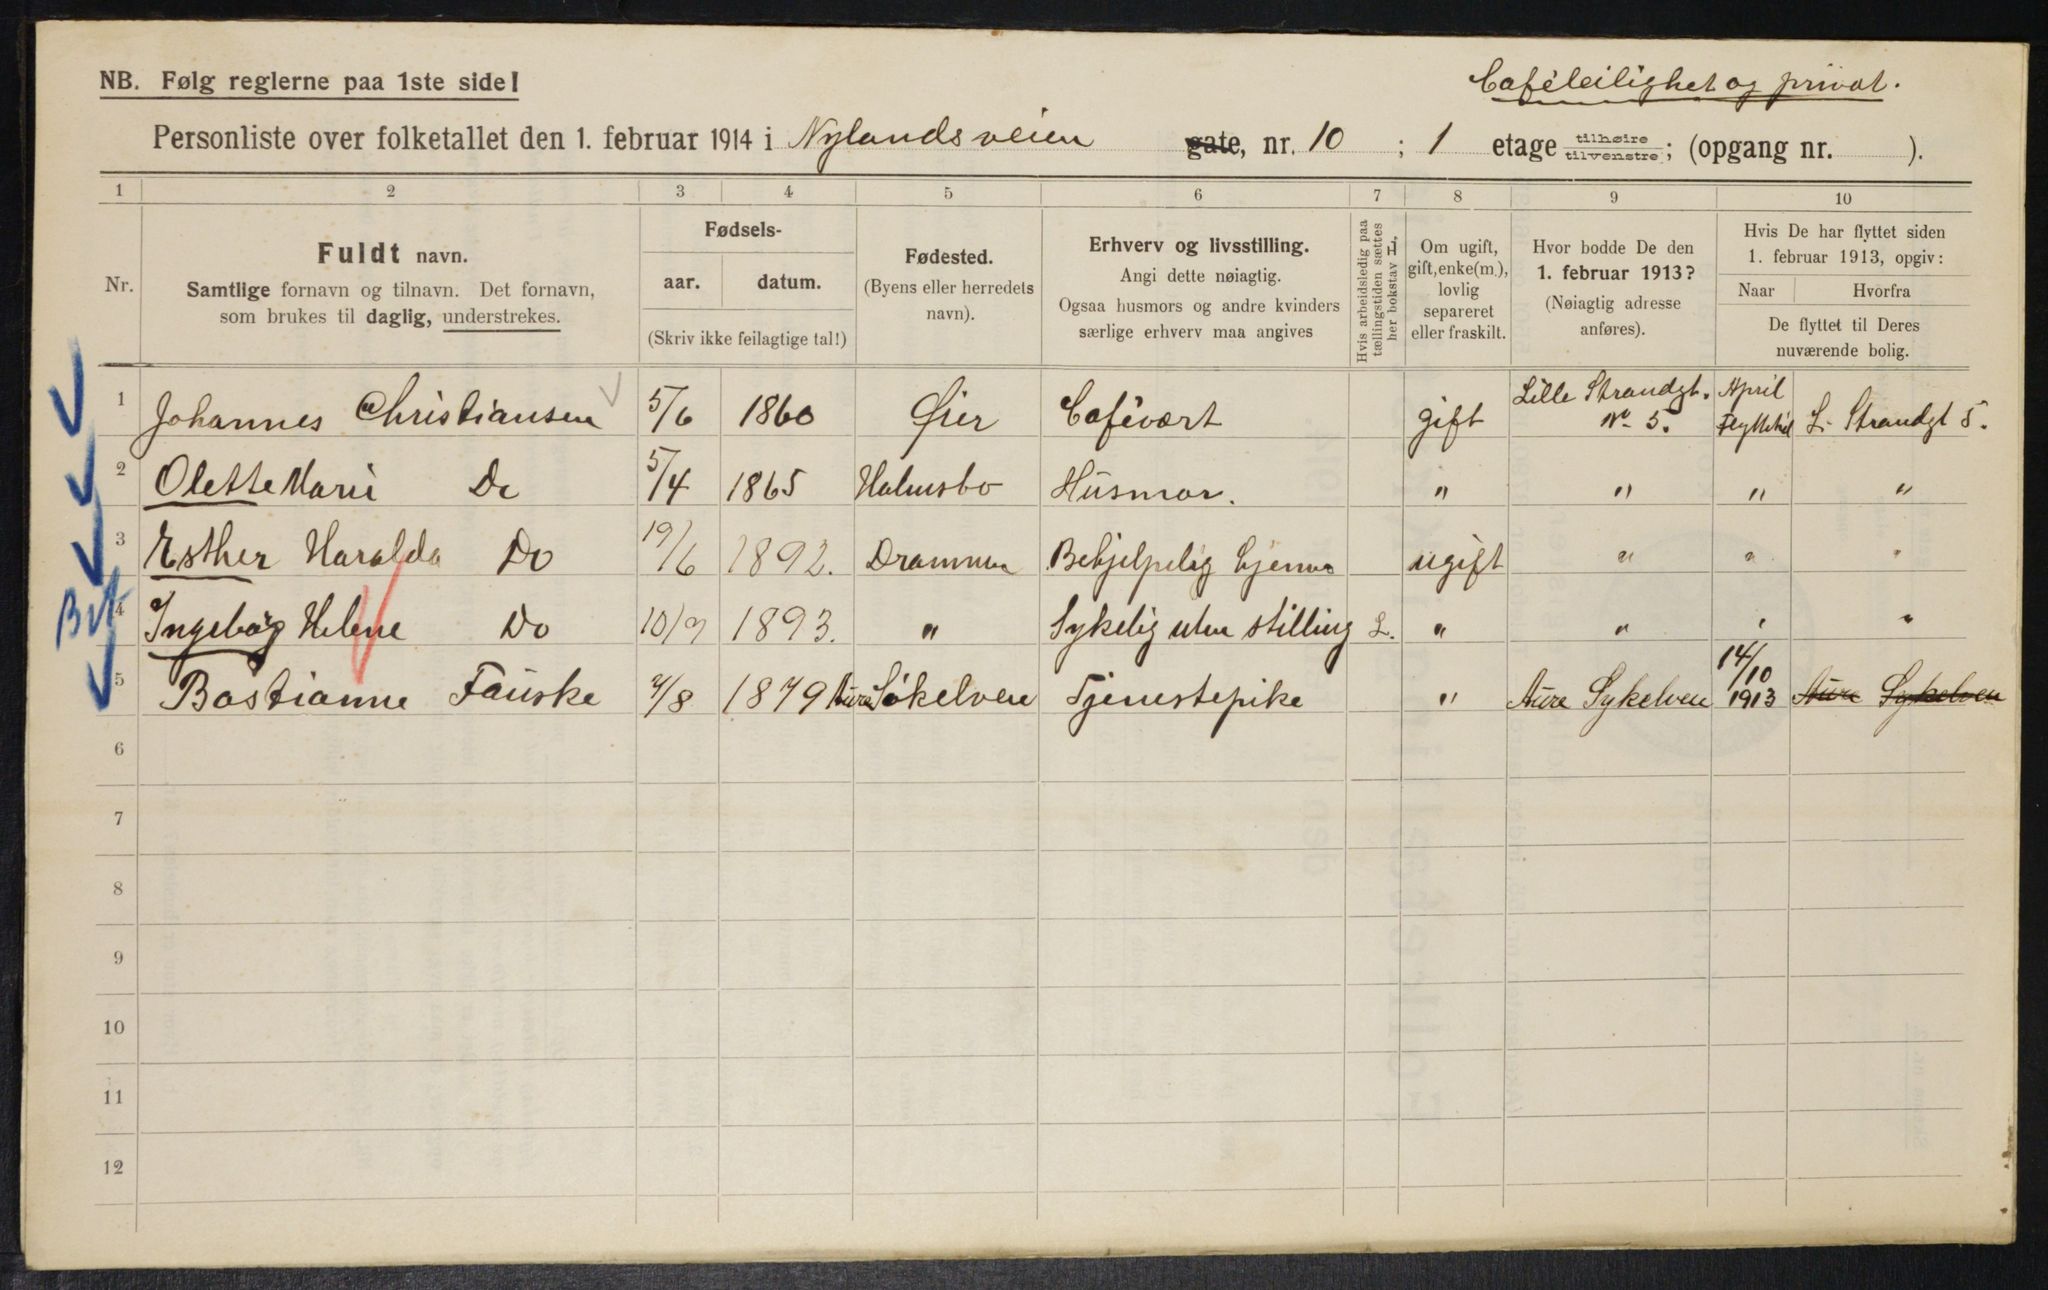 NB. Følg reglerne paa 1ste side!
Caféleilighet og privat.
Personliste over folketallet den 1. februar 1914 i Nylandsveien gate, nr. 10 ; 1 etage tilhøire tilvenstre; (opgang nr. ).
1 2 3 4 5 6 7 8 9 10
Nr.
Fuldt navn.
Samtlige fornavn og tilnavn. Det fornavn,
som brukes til daglig, understrekes.
Fødsels-
aar. datum.
(Skriv ikke feilagtige tal!)
Fødested.
(Byens eller herredets
navn).
Erhverv og livsstilling.
Angi dette nøiagtig.
Ogsaa husmors og andre kvinders
særlige erhverv maa angives
Hvis arbeidsledig paa
tællingstiden sættes
her bokstav L.
Om ugift,
gift, enke(m.),
lovlig
separeret
eller fraskilt.
Hvor bodde De den
1. februar 1913?
(Nøiagtig adresse
anføres).
Hvis De har flyttet siden
1. februar 1913, opgiv:
Naar Hvorfra
De flyttet til Deres
nuværende bolig.
1 Johannes Christiansen 5/6 1860 Øier Cafévært gift Lille Strandgt. No 5. April Flyttetid L. Strandgt 5.
2 Olette Marie Do 5/4 1865 Holmsbo Husmor. " " " "
3 Esther Haralda Do 19/6 1892. Drammen Behjelpelig hjemme ugift " " "
Bet
4 Ingeborg Helene Do 10/9 1893. " Sykelig uten stilling L. " " " "
5 Bastianne Fauske /8 1879 Aure Søkelven Tjenestepike " Aure Sykelven 14/10 1913 Aure Sykelven
6
7
8
9
10
11
12